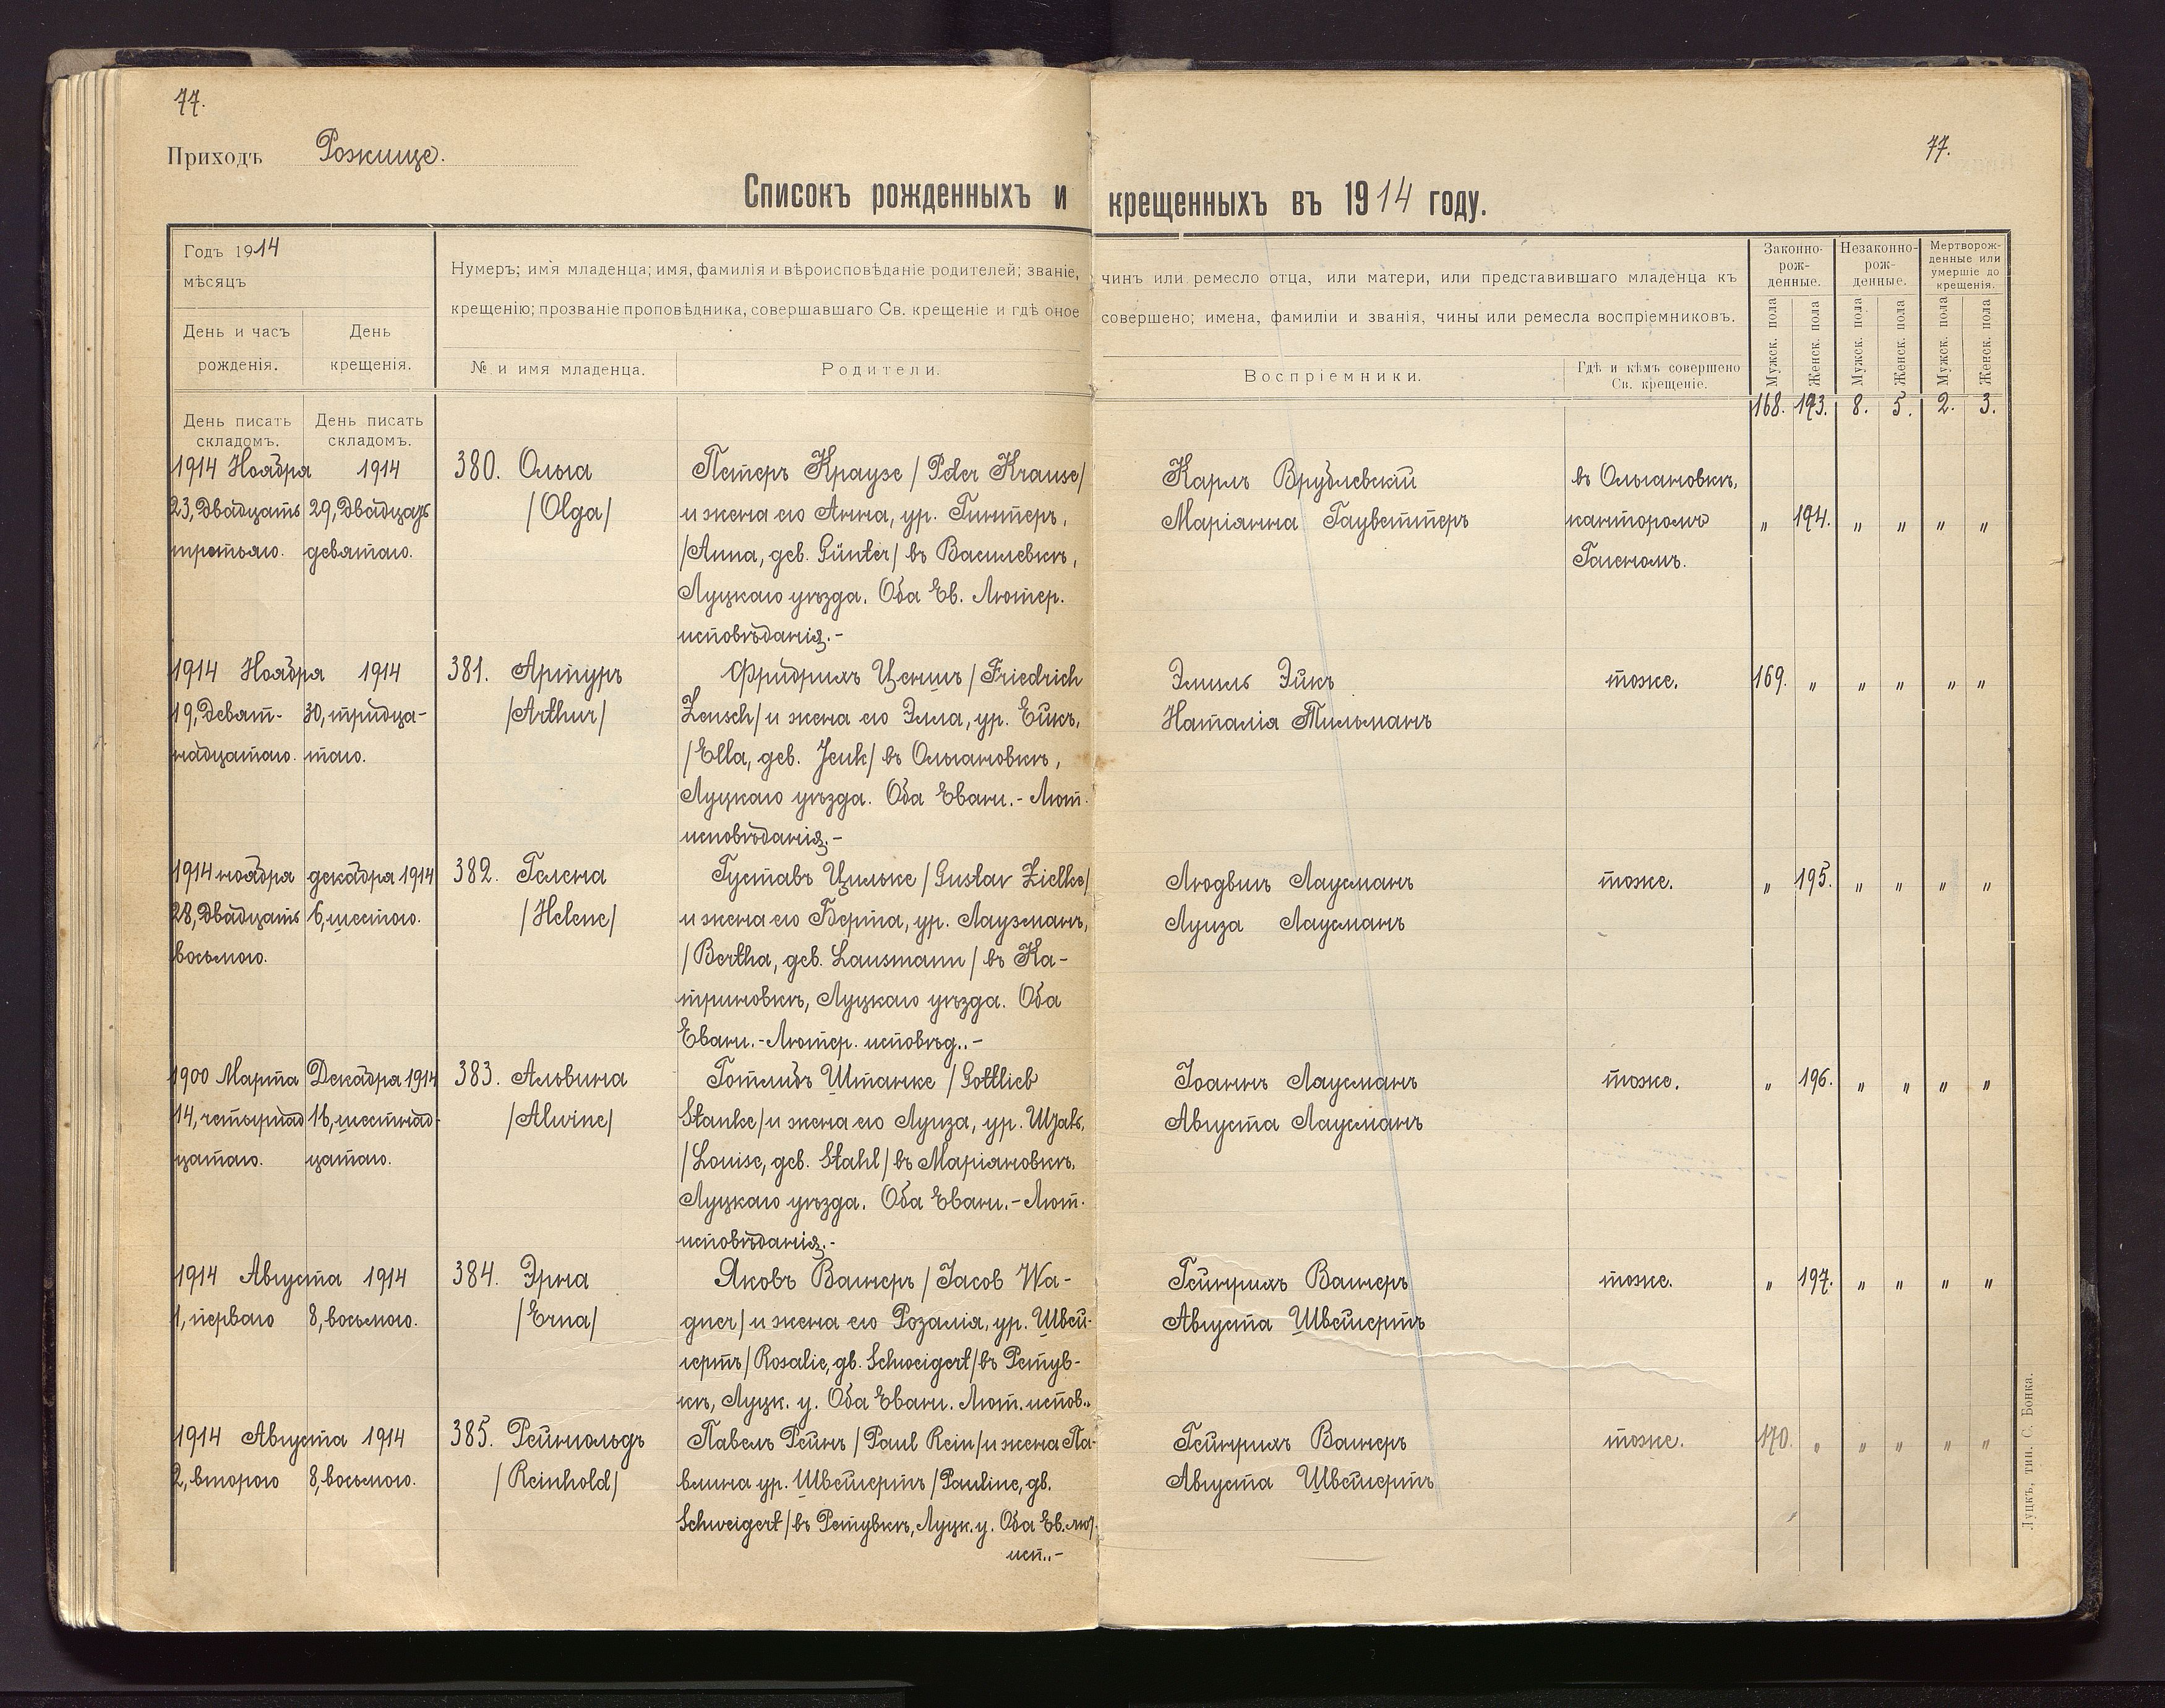 77.
77.
Приходъ Рожище.
Списокъ рожденныхъ и крещенныхъ въ 1914 году.
Годъ 1914
мѣсяцъ
День и часъ рожденія.
День крещенія.
Нумеръ; имя младенца; имя, фамилія и вѣроисповѣданіе родителей; званіе, чинъ или ремесло отца, или матери, или представившаго младенца къ
крещенію; прозваніе проповѣдника, совершавшаго Св. крещеніе и гдѣ оное совершено; имена, фамиліи и званія, чины или ремесла воспріемниковъ.
№ и имя младенца.
Родители.
Воспріемники.
Гдѣ и кѣмъ совершено
Св. крещеніе.
Законно-
рож-
денные.
Незаконно-
рож-
денные.
Мертворож-
денные или
умершіе до
крещенія.
Мужск. пола
Женск. пола
Мужск. пола
Женск. пола
Мужск. пола
Женск. пола
168. 193. 8. 5. 2. 3.
День писать
складомъ.
День писать
складомъ.
1914 Ноября
23, двадцать
третьяго.
1914
29, двадцать
девятаго.
380. Ольга
/Olga/
Петеръ Краузе /Peter Krause/
и жена его Анна, ур. Гинтеръ,
/Anna, geb. Günter/ въ Василевкѣ,
Луцкаго уѣзда. Оба Ев. Лютер.
исповѣданія.-
Карлъ Врублевскій
Маріянна Гауветтеръ
въ Ольгановкѣ,
канторомъ
Гагеномъ.
" 194. " " " "
1914 Ноября
19, девят-
надцатаго.
1914
30, тридца-
таго.
381. Артуръ
/Arthur/
Фридрихъ Ценшъ /Friedrich
Zensch/ и жена его Элла, ур. Ейкъ,
/Ella, geb. Jeuk/ въ Ольгановкѣ,
Луцкаго уѣзда. Оба Еванг.-Лют.
исповѣданія.-
Эмиль Эйкъ
Наталія Тильманъ
тоже.
169. " " " " "
1914 ноября
28, двадцать
восьмого.
декабря 1914
6, шестого.
382. Гелена
/Helene/
Густавъ Цильке /Gustav Zielke/
и жена его Берта, ур. Лаузманъ,
/Bertha, geb. Lausmann/ въ Ка-
триновкѣ, Луцкаго уѣзда. Оба
Еванг.-Лютер. исповѣд..-
Людвигъ Лаусманъ
Луиза Лаусманъ
тоже.
" 195. " " " "
1900 Марта
14, четырнад
цатаго.
Декабря 1914
16, шестнад-
цатаго.
383. Альвина
/Alwine/
Готлибъ Штанке /Gottlieb
Stanke/ и жена его Луиза, ур. Шталь,
/Louise, geb. Stahl/ въ Маріяновкѣ,
Луцкаго уѣзда. Оба Еванг.-Лют.
исповѣданія.-
Іоаннъ Лаусманъ
Августа Лаусманъ
тоже.
" 196. " " " "
1914 Августа
1, перваго
1914
8, восьмого.
384. Эрна
/Erna/
Яковъ Вагнеръ /Jacob Wa-
gner/ и жена его Розалія, ур. Швей-
гертъ /Rosalie, gb. Schweigert/ въ Ретув-
кѣ, Луцк. у. Оба Еванг. Лют. испов..
Гейнрихъ Вагнеръ
Августа Швейгертъ
тоже.
" 197. " " " "
1914 Августа
2, второго
1914
8, восьмого.
385. Рейнольдъ
/Reinhold/
Павелъ Рейнъ /Paul Rein/ и жена Па-
влина ур. Швейгертъ /Pauline, gb.
Schweigert/ въ Ретувкѣ, Луцк. у. Оба Ев. лют.
исп..-
Гейнрихъ Вагнеръ
Августа Швейгертъ
тоже.
170. " " " " "
Луцкъ, тип. С. Бонка.